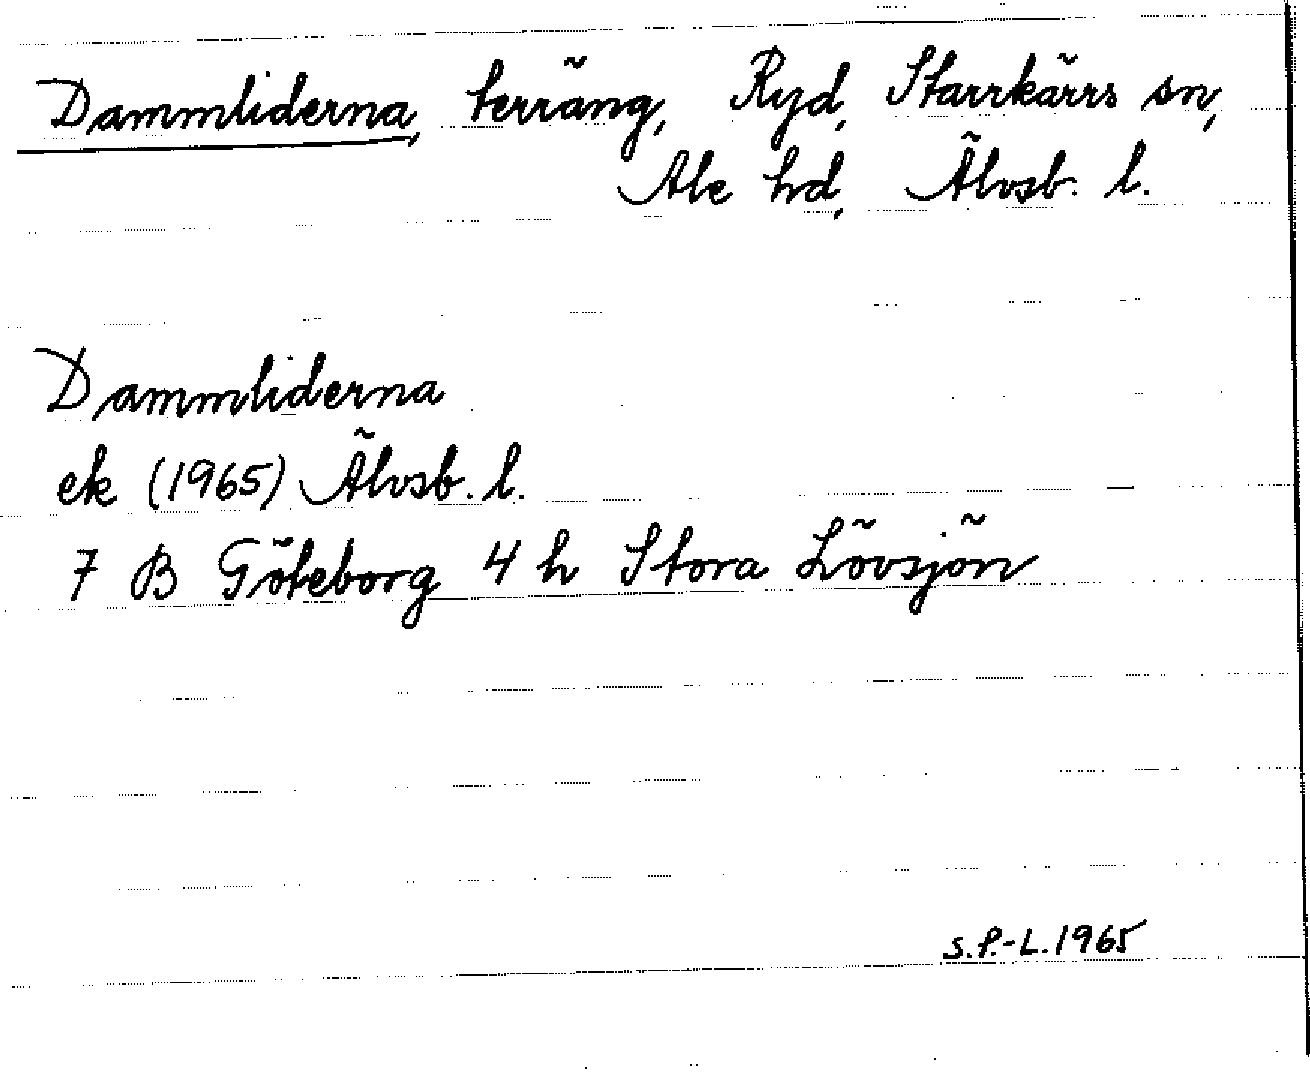 Dammliderna, terräng, Ryd, Starrkärrs sn,
Ale hd, Älvsb. l.
Dammliderna
ek (1965) Älvsb. l.
7 B Göteborg 4 h Stora Lövsjön
S.P.-L. 1965